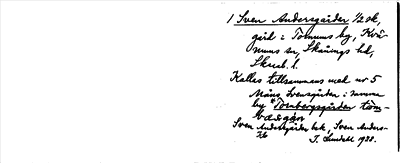 1 Sven Andersgården 1/2 sk,
gård i Tornums by, Kvä-
nums sn, Skånings hd,
Skarab. l.
Kallas tillsammans med nr 5
Måns Svensgården i samma
by "Tornbergsgården
Sven Andersgården bek, Sven Anders-
T. Lundahl 1930.